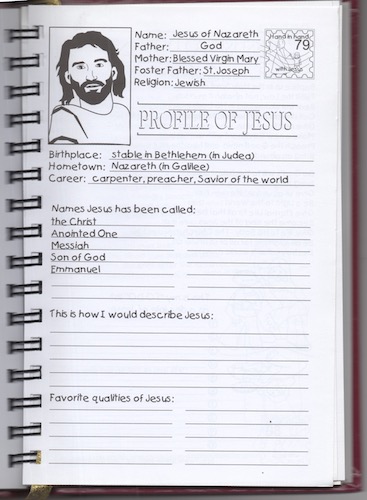 Name: Jesus of Nazareth
Father: God
Mother: Blessed Virgin Mary
Foster Father: St. Joseph
Religion: Jewish
Hand in hand
79
with Jesus
PROFILE OF JESUS
Birthplace: stable in Bethlehem (in Judea)
Hometown: Nazareth (in Galilee)
Career: carpenter, preacher, Savior of the world
Names Jesus has been called:
the Christ
Anointed One
Messiah
Son of God
Emmanuel
This is how I would describe Jesus:
Favorite qualities of Jesus: